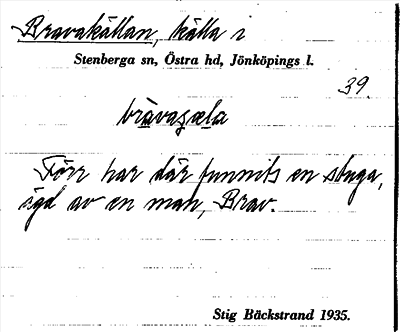 Bravakällan, källa i
Stenberga sn, Östra hd, Jönköpings l.
39.
bràvaɕæla
Förr har där funnits en stuga,
ägd av en man, Brav.
Stig Bäckstrand 1935.